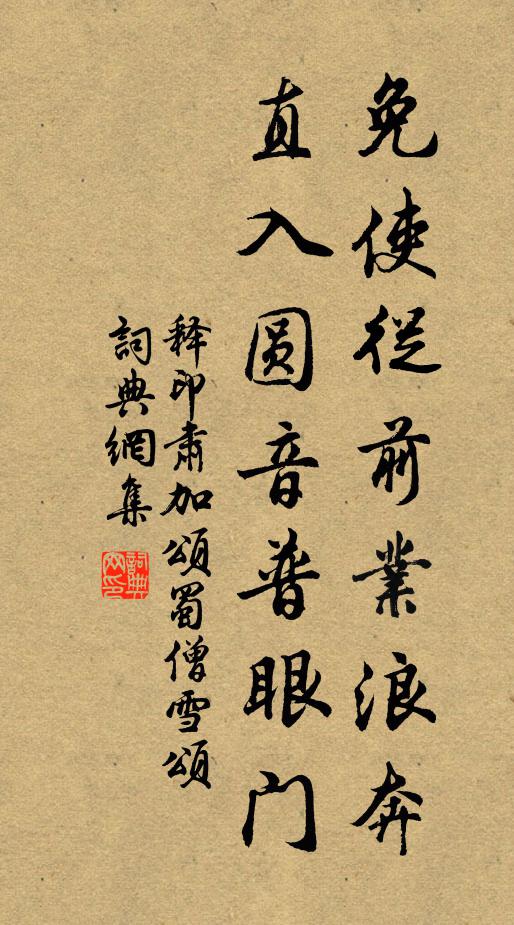 免使從前業浪奔
直入圓音普眼门
释印肅加頌蜀僧雪頌
詞典網集
詞典
网印